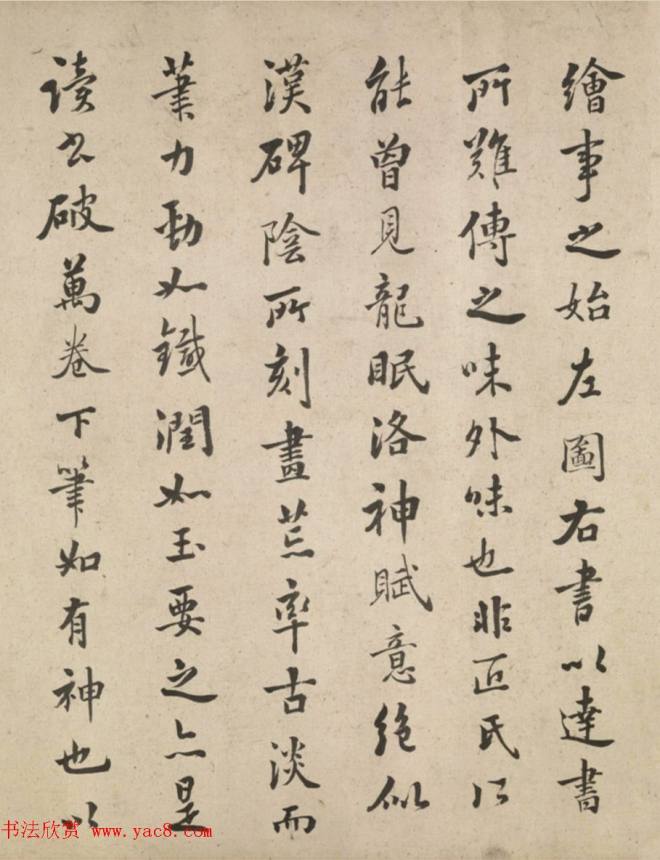 繪事之始左圖右書以達書
所難傳之味外味也非匠氏所
能曾見龍眠洛神賦意絶似
漢碑陰所刻畫荒率古淡而
筆力勁如鐵潤如玉要之亦是
读书破萬卷下筆如有神也以
书法欣赏 www.yac8.com